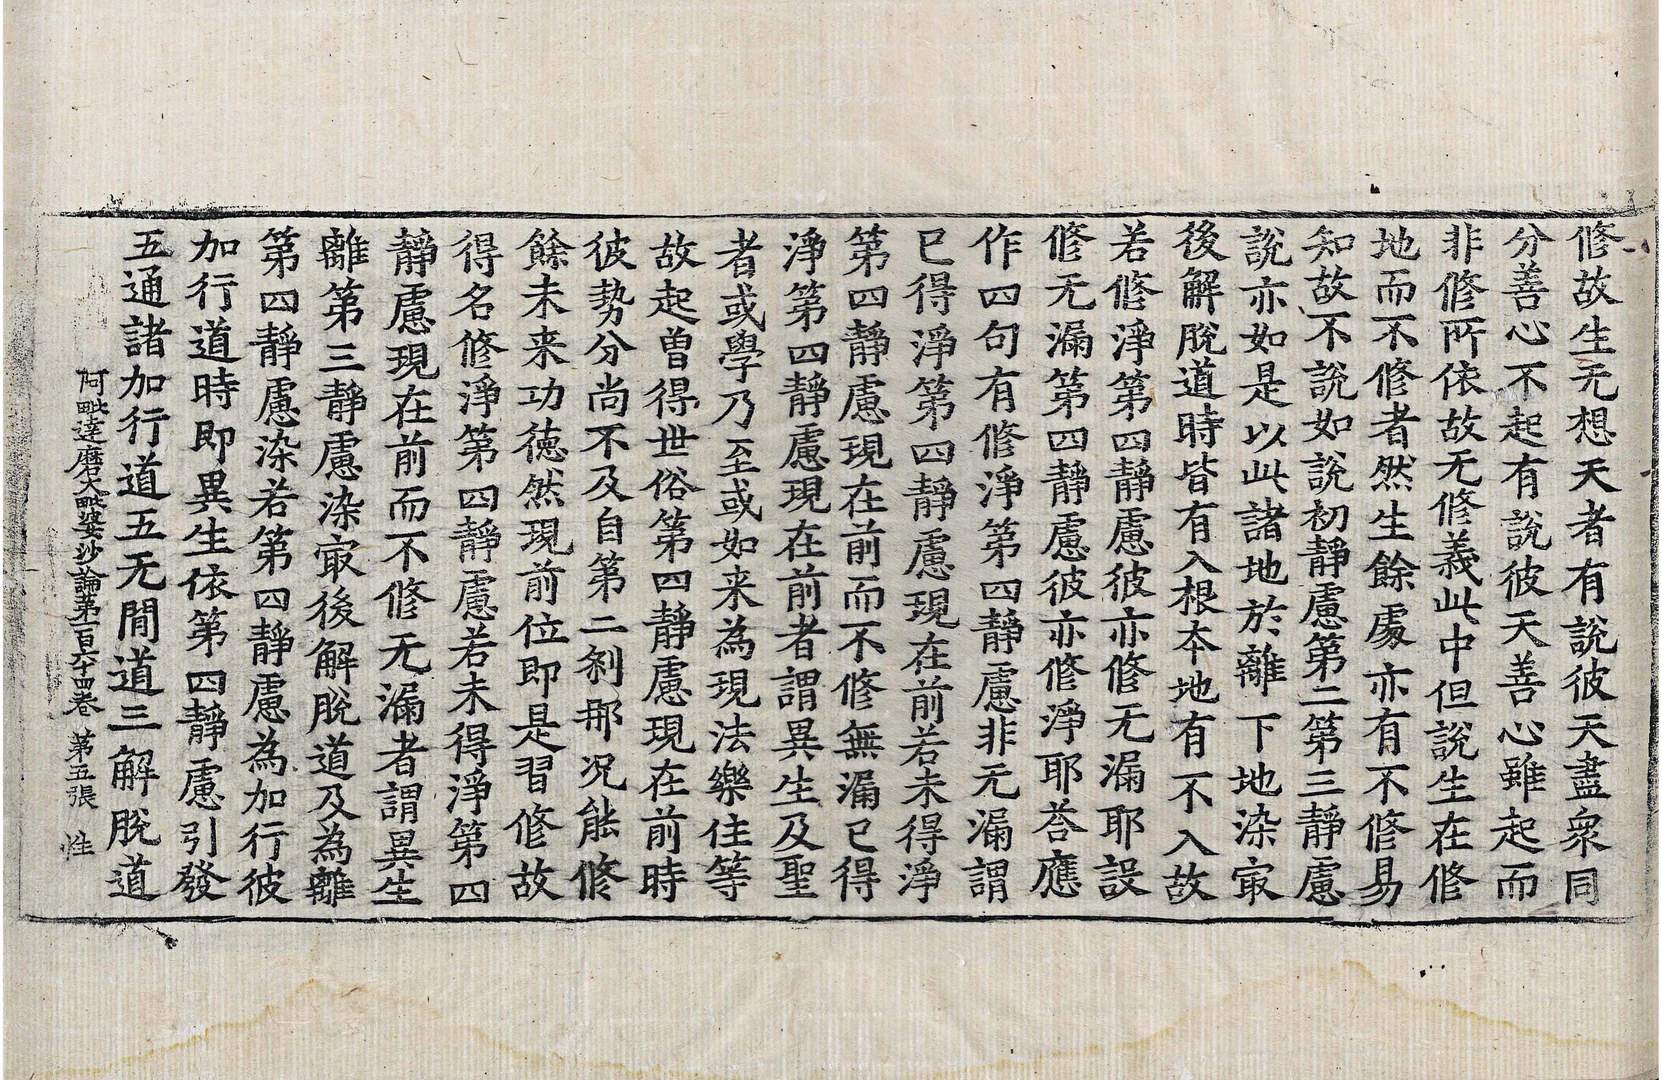 修故生无想天者有說彼天盡衆同
分善心不起有說彼天善心雖起而
非修所依故无修義此中但說生在修
地而不修者然生餘處亦有不修易
知故不說如說初靜慮第二第三靜慮
說亦如是以此諸地於離下地染㝡
後解脫道時皆有入根本地有不入故
若修淨第四靜慮彼亦修无漏耶設
修无漏第四靜慮彼亦修淨耶荅應
作四句有修淨第四靜慮非无漏謂
已得淨第四靜慮現在前若未得淨
第四靜慮現在前而不修無漏已得
淨第四靜慮現在前者謂異生及聖
者或學乃至或如来為現法樂住等
故起曽得世俗第四靜慮現在前時
彼勢分尚不及自第二剎那况能修
餘未来功德然現前位即是習修故
得名修淨第四靜慮若未得淨第四
靜慮現在前而不修无漏者謂異生
離第三靜慮染㝡後解脫道及為離
第四靜慮染若第四靜慮為加行彼
加行道時即異生依第四靜慮引發
五通諸加行道五无間道三解脫道
阿毗達磨大毗婆沙論第一百六十四卷 第五張 性